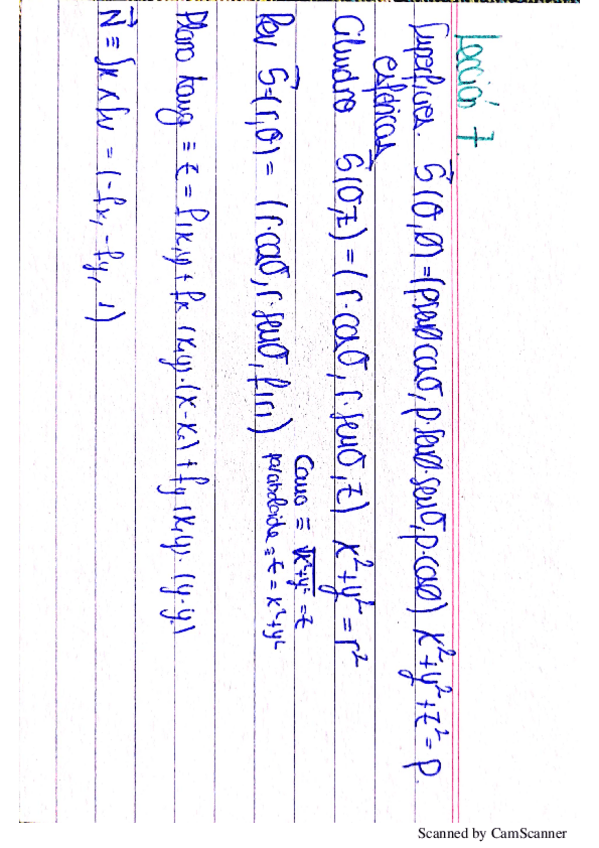 Lección 7
Superficies. S⃗(θ,ø)=(ρsenø cosθ, ρ.senø.senθ, ρ.cosø) x²+y²+z²=ρ
esféricas
Cilindro S⃗(θ,z)=(r.cosθ, r.senθ, z) x²+y²=r²
Rev S⃗=(r,θ)= (r.cosθ, r.senθ, f(r))
Cono ≡ √x²+y² =z
paraboloide ≡ z=x²+y²
Plano tang ≡ z = f(x,y + fx (x,y).(x-x.) + fy (x,y). (y-y.)
N⃗ ≡ = (-fx, -fy, 1)
Scanned by CamScanner